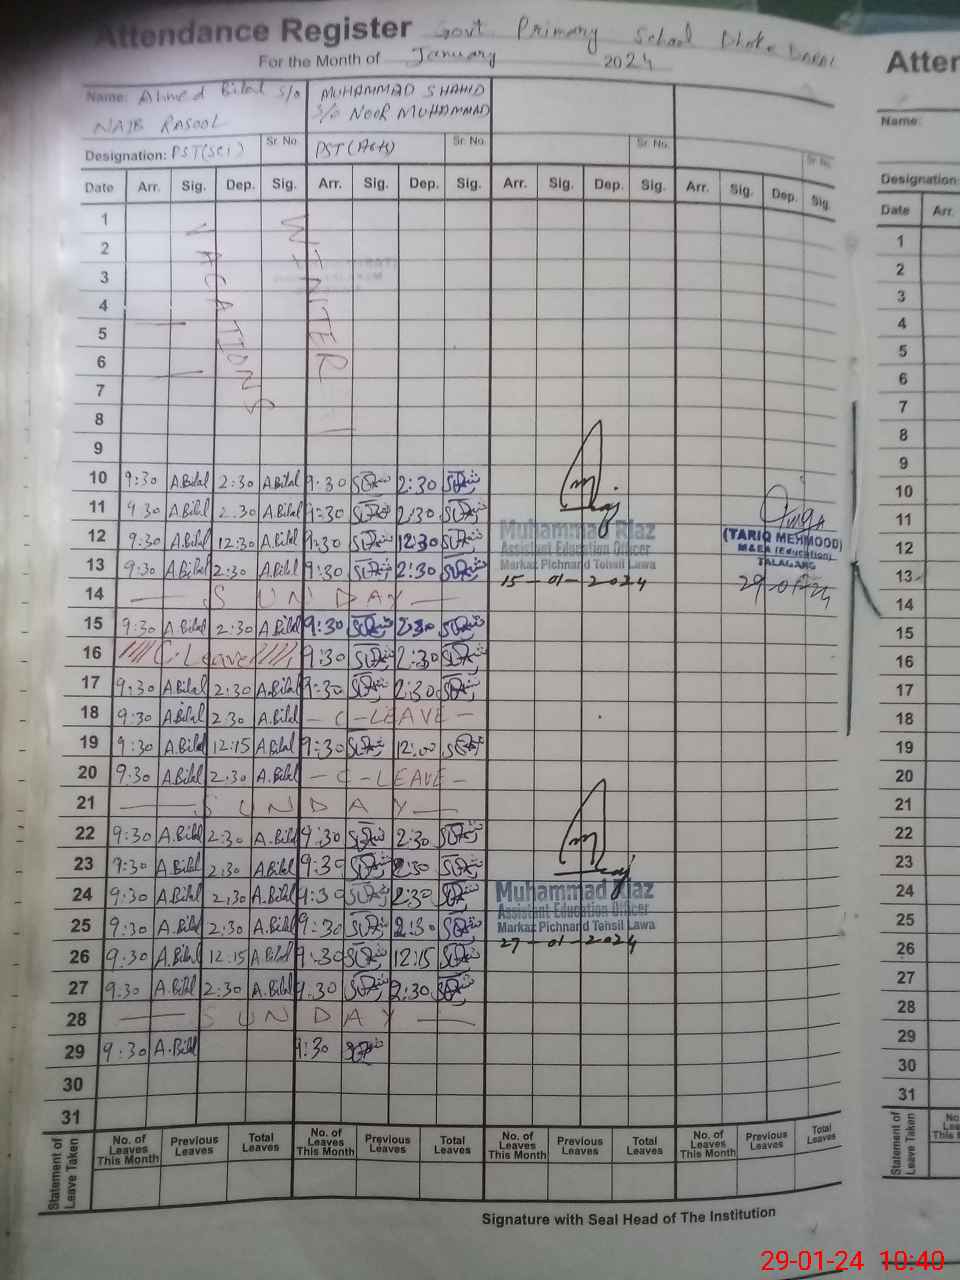 Attendance Register Govt. Primary School Dhoke
For the Month of January 2024
Name: Ahmed Bilal S/o
NAIB RASOOL
MUHAMMAD SHAHID
S/o NOOR MUHAMMAD
Designation: PST(Sci) Sr. No. PST(Arts) Sr. No. Sr. No. Sr. No.
Date Arr. Sig. Dep. Sig. Arr. Sig. Dep. Sig. Arr. Sig. Dep. Sig. Arr. Sig. Dep. Sig.
WINTER
VACATIONS
1
2
3
4
5
6
7
8
9
10 9:30 A.Bilal 2:30 A.Bilal 9:30 2:30
11 9:30 A.Bilal 2:30 A.Bilal 9:30 2:30
12 9:30 A.Bilal 12:30 A.Bilal 9:30 12:30
13 9:30 A.Bilal 2:30 A.Bilal 9:30 2:30
14 SUNDAY
15 9:30 A.Bilal 2:30 A.Bilal 9:30 2:30
16 C-Leave 9:30 2:30
17 9:30 A.Bilal 2:30 A.Bilal 9:30 2:30
18 9:30 A.Bilal 2:30 A.Bilal - C-LEAVE -
19 9:30 A.Bilal 12:15 A.Bilal 9:30 12:00
20 9:30 A.Bilal 2:30 A.Bilal - C-LEAVE -
21 SUNDAY
22 9:30 A.Bilal 2:30 A.Bilal 9:30 2:30
23 9:30 A.Bilal 2:30 A.Bilal 9:30 2:30
24 9:30 A.Bilal 2:30 A.Bilal 9:30 2:30
25 9:30 A.Bilal 2:30 A.Bilal 9:30 2:30
26 9:30 A.Bilal 12:15 A.Bilal 9:30 12:15
27 9:30 A.Bilal 2:30 A.Bilal 9:30 2:30
28 SUNDAY
29 9:30 A.Bilal 9:30
30
31
Muhammad Riaz
Assistant Education Officer
Markaz Pichnand Tehsil Lawa
15-01-2024
(TARIQ MEHMOOD)
M&EA (Education)
TALAGANG
29-01-24
Muhammad Riaz
Assistant Education Officer
Markaz Pichnand Tehsil Lawa
27-01-2024
Statement of Leave Taken
No. of Leaves This Month Previous Leaves Total Leaves No. of Leaves This Month Previous Leaves Total Leaves No. of Leaves This Month Previous Leaves Total Leaves No. of Leaves This Month Previous Leaves Total Leaves
Signature with Seal Head of The Institution
Name:
Designation:
Date Arr.
1
2
3
4
5
6
7
8
9
10
11
12
13
14
15
16
17
18
19
20
21
22
23
24
25
26
27
28
29
30
31
Statement of Leave Taken
29-01-24 10:40